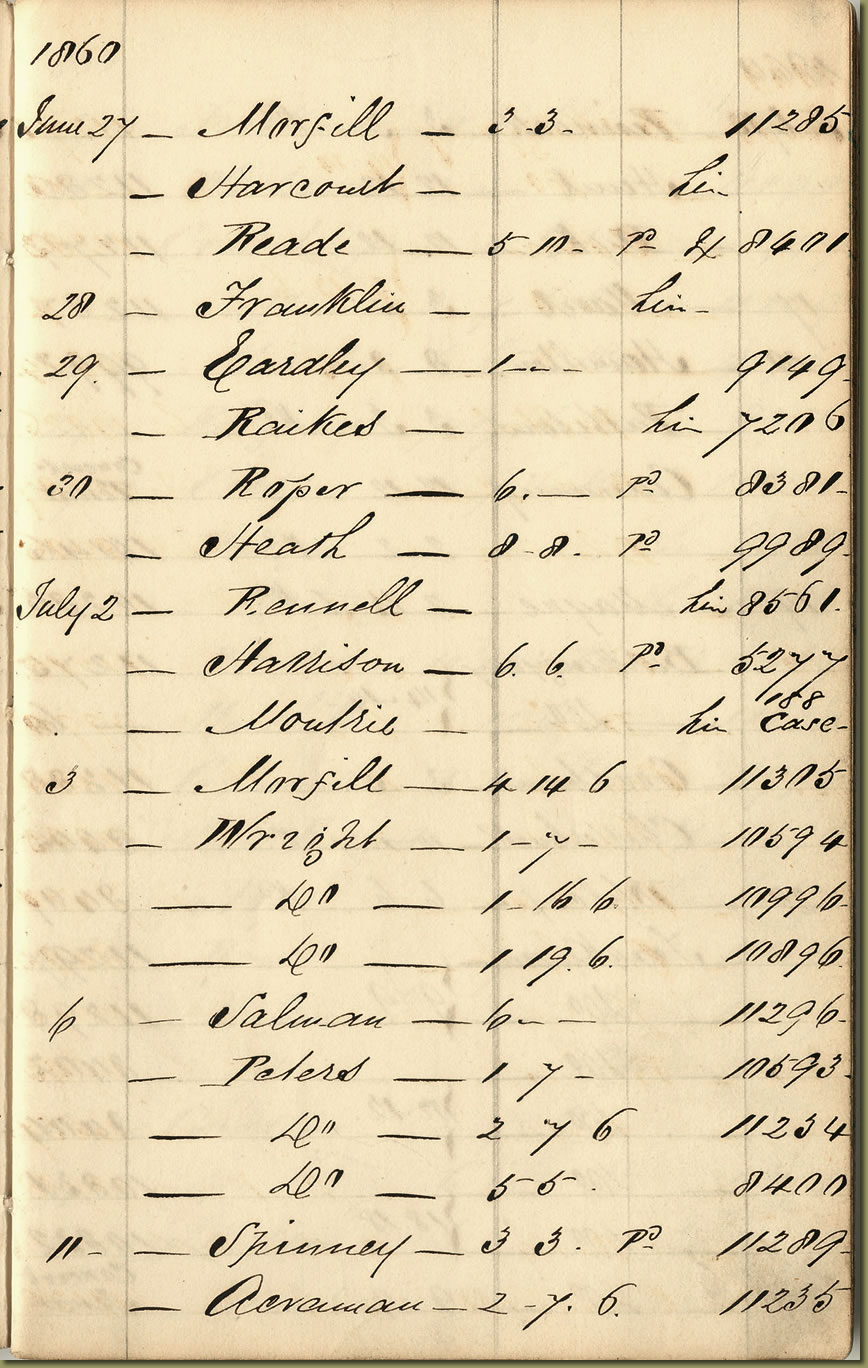 1860
June 27 — Morfill — 3 - 3 - 11285
— Harcourt — hin
— Reade — 5 10 - Pd Ex 8401
28 — Franklin — hin -
29. — Eardley — 1 - - - 9149 -
— Raikes — hin 7206
30 — Roper — 6. — Pd 8381 -
— Heath — 8 - 8. Pd 9989 -
July 2 — Rennell — hin 8561.
— Harrison — 6. 6. Pd 5277
188
— Moutrie — hin Case -
3 — Morfill — 4 14 6 11305
— Wright — 1 - 7 - 10594
— Do — 1 - 16 6 10996 -
— Do — 1 19. 6. 10896
6 — Salman — 6 - - 11296 -
— Peters — 1 7 - 10593 -
— Do — 2 7 6 11234
— Do — 5 5 . 8400
11 - — Spinney — 3 3 . Pd 11289 -
— Acraman — 2 - 7. 6. 11235